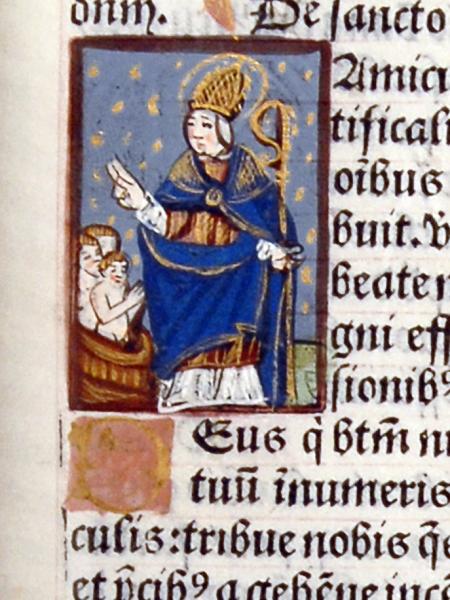 dnm̄. De sancto
Amici
tificali
oībus
buit. V̄
beate n
gni eff
sionibꝰ
DEus q̇ btm̄ ni
tuū īnumeris
culis: tribue nobis q̄s
et p̄cibꝰ a gehēne incē